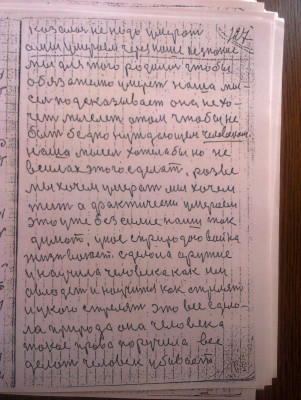 127
казалось не надо умерат
а мы умераем через наше незнание
мы для того родились чтобы
обязательно умерет наша мы
сел подсказывает она не хо
чет мыслет этом чтобы не
быт бедно нуждающем человеком.
наша мысел хотела бы но не
в силах этого сделат, разве
мы хочем умерат мы хочем
жит а фрактически умераем
это уже безсилие нашу так
думат, у нас с природою война
сделала оружие
и научила человека как им
овладет и научит как стрелят
и у кого стрелят это все сдела
ла природа она человека
такое право поручила все
делат человек убивает